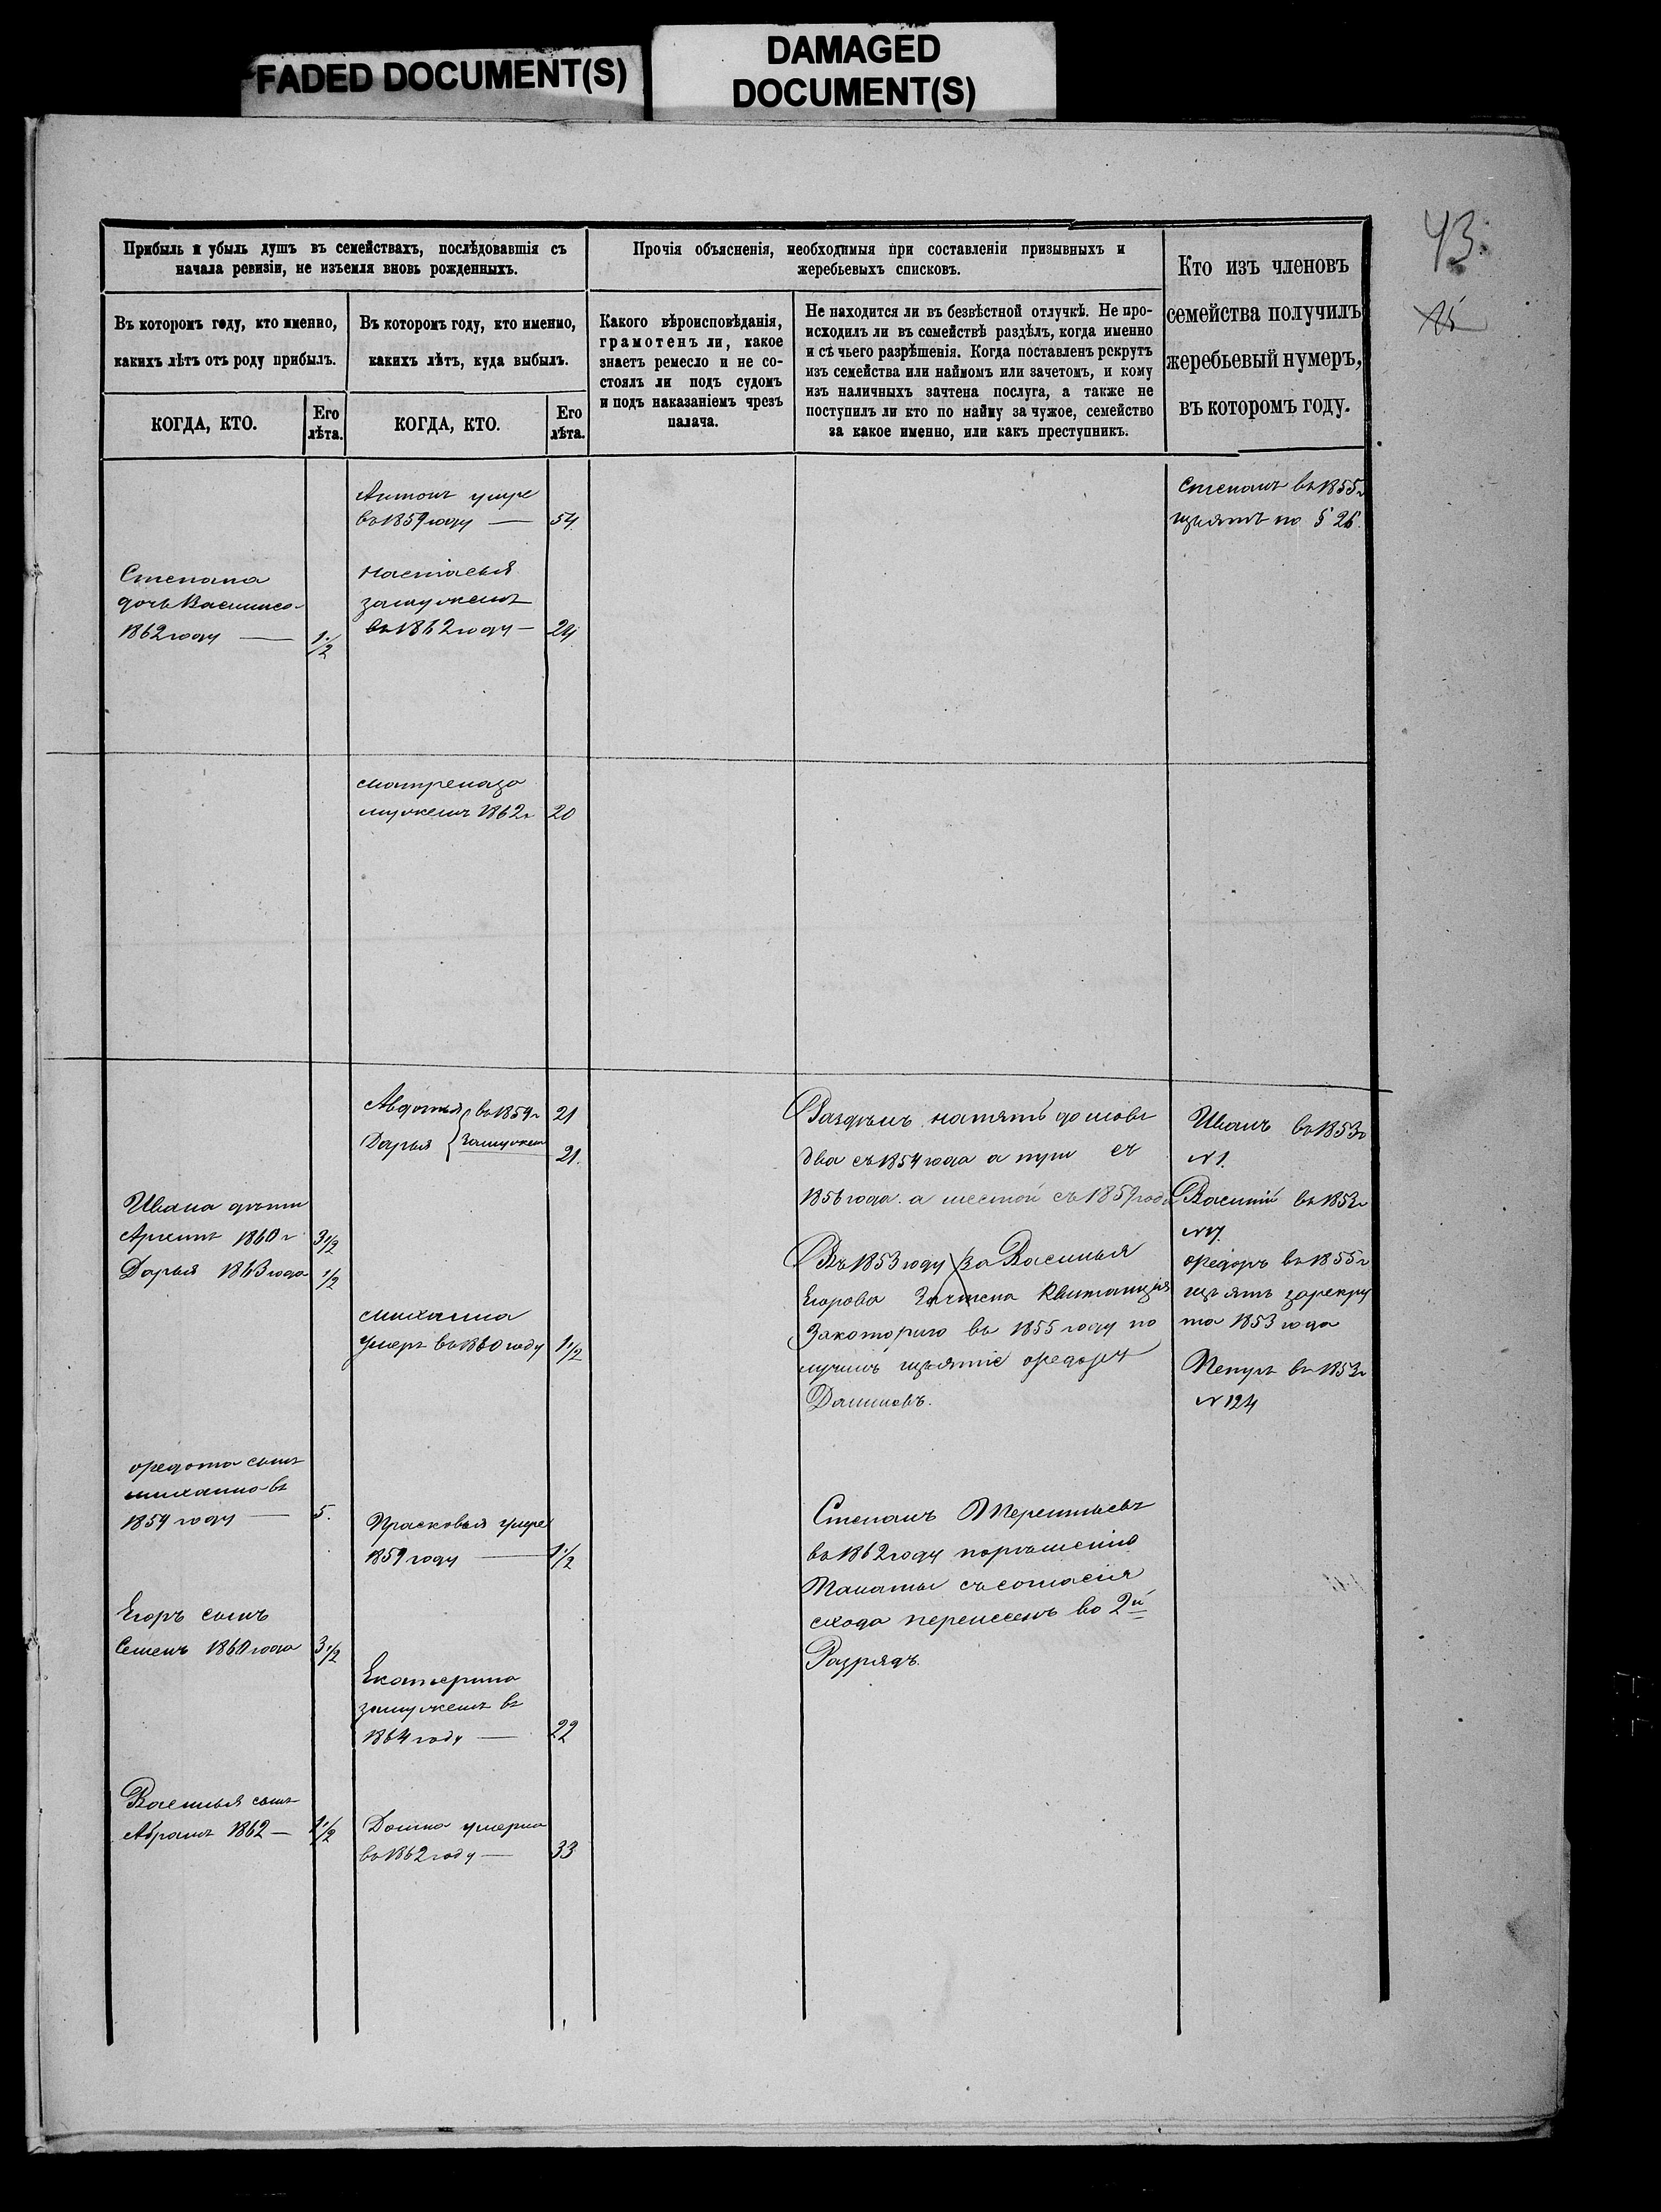 FADED DOCUMENT(S)
DAMAGED
DOCUMENT(S)
43.
Прибыль и убыль душъ въ семействахъ, послѣдовавшія съ
начала ревизіи, не изъемля вновь рожденныхъ.
Прочія объясненія, необходимыя при составленіи призывныхъ и
жеребьевыхъ списковъ.
Кто изъ членовъ
семейства получилъ
жеребьевый нумеръ,
въ которомъ году.
Въ которомъ году, кто именно,
какихъ лѣтъ отъ роду прибылъ.
Въ которомъ году, кто именно,
какихъ лѣтъ, куда выбылъ.
Какого вѣроисповѣданія,
грамотенъ ли, какое
знаетъ ремесло и не со-
стоялъ ли подъ судомъ
и подъ наказаніемъ чрезъ
палача.
Не находится ли въ безвѣстной отлучкѣ. Не про-
исходилъ ли въ семействѣ раздѣлъ, когда именно
и съ чьего разрѣшенія. Когда поставленъ рекрутъ
изъ семейства или наймомъ или зачетомъ, и кому
изъ наличныхъ зачтена послуга, а также не
поступилъ ли кто по найму за чужое, семейство
за какое именно, или какъ преступникъ.
КОГДА, КТО.
Его
лѣта.
КОГДА, КТО.
Его
лѣта.
Антонъ умре
въ 1859 году — 54
Степанъ въ 1855 г
изъятъ по § 26.
Степана
дочь Василиса
1862 году — 1 1/2
Настасья
замужемъ
въ 1862 году — 24
Матрена за
мужемъ 1862 г 20
Авдотья въ 1859 г 21
Дарья замужем 21.
Раздѣлъ на пять домовъ
два съ 1854 года а три съ
1856 года. а шестой съ 1859 года
Иванъ въ 1853 г
N 1.
Василій въ 1853 г
Ивана дѣти
Архипъ 1860 г 3 1/2
Дарья 1863 года 1/2
Въ 1853 году за Василья
Егорова Зачтена Квитанція
Закоторую въ 1855 году по
лучилъ изъятіе Ѳедоръ
Даниловъ.
Ѳедоръ въ 1855 г
изъятъ зарекру
та 1853 года
Петръ въ 1853 г
N 124
Михаила
умеръ въ 1860 году 1 1/2
Ѳедота сынъ
Михаило въ
1859 году — 5.
Прасковья умре
1859 году — 1 1/2
Степанъ Терентьевъ
въ 1862 году порѣшенію
Палаты съ согласія
схода перенесенъ во 2й
Разрядъ.
Егоръ сынъ
Семенъ 1860 года 3 1/2
Екатерина
замужемъ въ
1864 году — 22
Василья сынъ
Абрамъ 1862 — 1 1/2
Домна умерла
въ 1862 году — 33